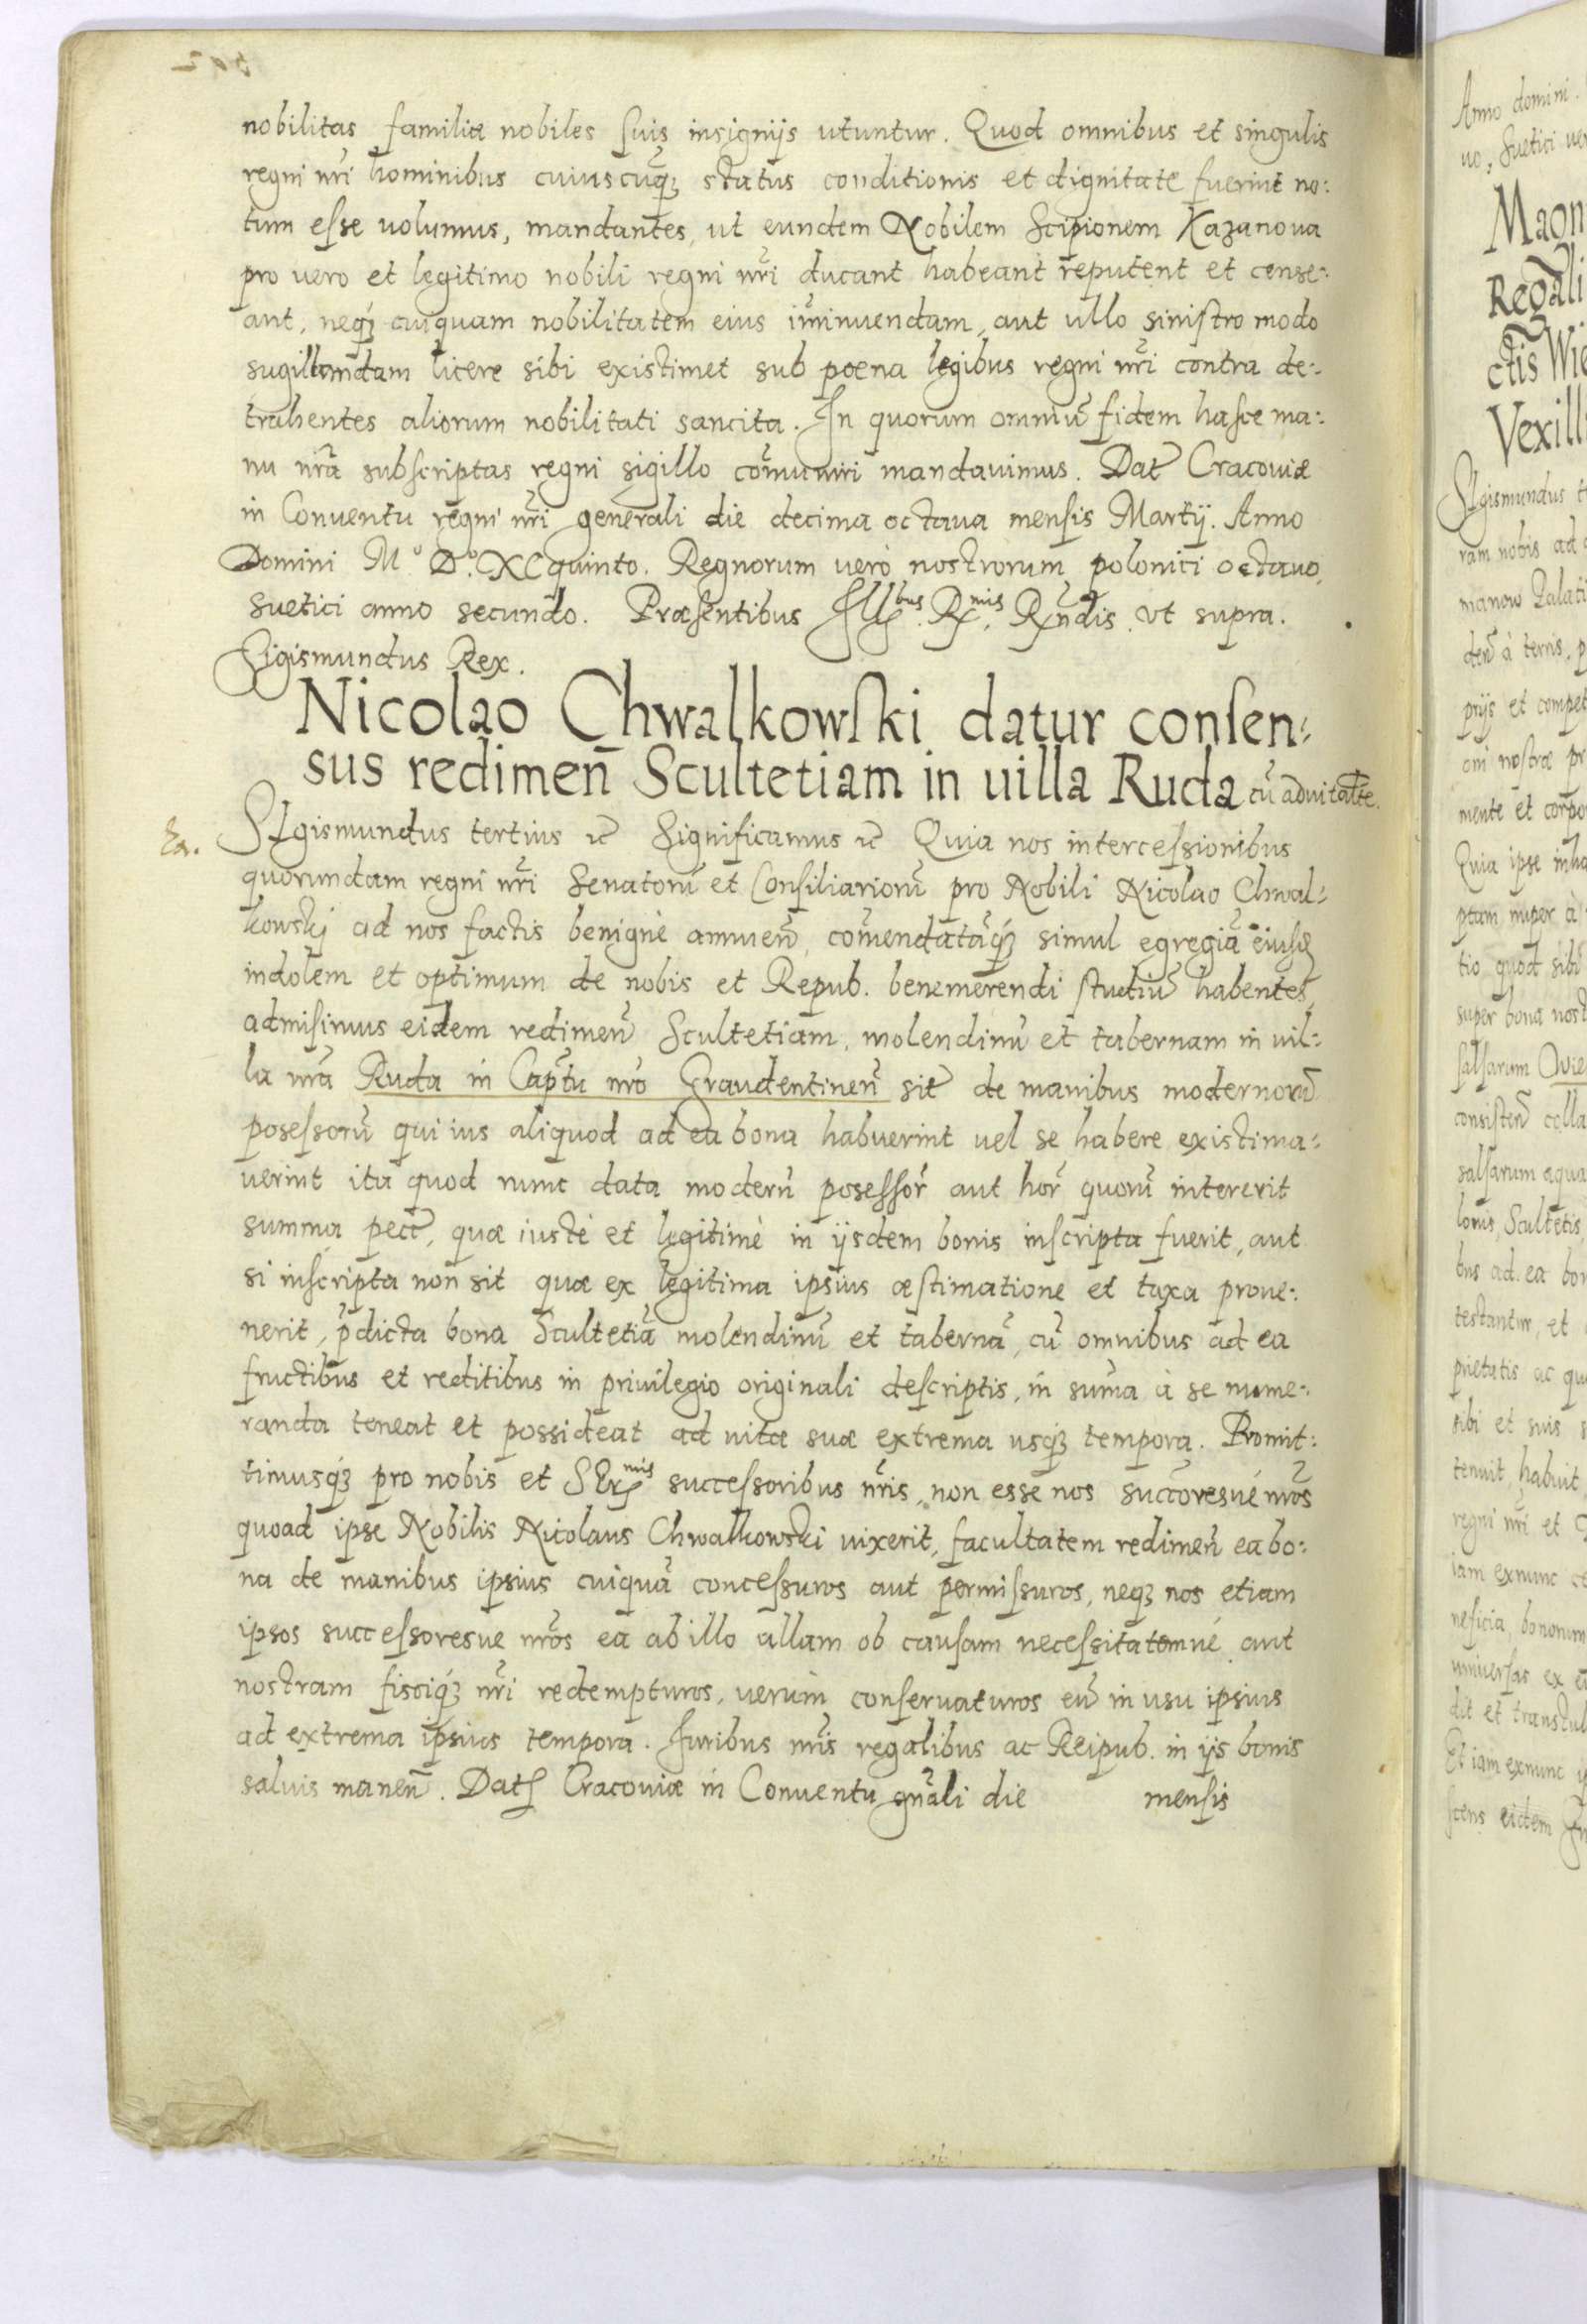 nobilitas familiæ nobiles suis insignijs utuntur. Quod omnibus et singulis
regni nr̃i hominibus cuiuscuq̃ꝫ status conditionis et dignitate fuerint no:
tum esse uolumus, mandantes, ut eundem Nobilem Scipionem Kazanoua
pro uero et legitimo nobili regni nr̃i ducant habeant reputent et cense:
ant, neqꝫ cuiquam nobilitatem eius im̃inuendam, aut ullo sinistro modo
sugillandam licere sibi existimet sub poena legibus regni nr̃i contra de:
trahentes aliorum nobilitati sancita. In quorum omniũ fidem hasce ma:
nu nr̃a subscriptas regni sigillo com̃uniri mandauimus. Dat̃ Cracouiæ
in Conuentu regni nr̃i generali die decima octaua mensis Martij. Anno
Domini M.º D.º XC quinto. Regnorum uerò nostrorum polonici octauo,
Suetici anno secundo. Præsentibus Illꝭ.bus Rꝭ.mis Rꝭñdis ut supra.
Sigismundus Rex.
Nicolao Chwalkowski datur consen:
sus redimen̄ Scultetiam in uilla Ruda cũ aduitalte.
Ex.
SIgismundus tertius ꝛc̃ Significamus ꝛc̃ Quia nos intercessionibus
quorundam regni nr̃i Senatorũ et Consiliariorũ pro Nobili Nicolao Chwal:
kowskj ad nos factis benignè annuen̄, com̃endatãqꝫ simul egregiã eiusꝫ
indolem et optimum de nobis et Repub. benemerendi studiũ habentes,
admisimus eidem redimen̄ Scultetiam, molendinũ et tabernam in uil:
la nr̃a Ruda in Cap̃tu nr̃o Graudentinen̄ sit̃ de manibus modernorũ
posessorũ qui ius aliquod ad ea bona habuerint uel se habere existima:
uerint ita quod nunc data modern̄ posessor̃ aut hor̃ quorũ intererit
summa pec̃, quæ iustè et legitimè in ijsdem bonis inscripta fuerit, aut
si inscripta non sit quæ ex legitima ipsius æstimatione et taxa proue:
nerit, p̃dicta bona Scultetiã molendinũ et tabernã, cũ omnibus ad ea
fructibus et reditibus in priuilegio originali descriptis, in sum̃a à se nume:
randa teneat et possideat ad uitæ suæ extrema usqꝫ tempora. Promit:
timusqꝫ pro nobis et SErꝭmis successoribus nr̃is, non esse nos succ̃oresuè nr̃os
quoad ipse Nobilis Nicolaus Chwalkowski uixerit, facultatem redimen̄ ea bo:
na de manibus ipsius cuiquã concessuros aut permissuros, neqꝫ nos etiam
ipsos successoresue nr̃os ea ab illo ullam ob causam necessitatemuè aut
nostram fisciqꝫ nr̃i redempturos, uerùm conseruaturos eũ in usu ipsius
ad extrema ipsius tempora. Iuribus nr̃is regalibus ac Reipub. in ijs bonis
saluis manen̄. Datꝭ Cracouiæ in Conuentu gnãli die mensis
Anno domini
uo, Suetici
Regali
ctis
Vexill
SIgismundus
ram nobis ad
manow Palati
den̄ à ternis
prijs et compet
oni nostræ
mente et corpo
Quia ipse
ptam nuper à
tio quod sibi
super bona nost
salsarum
consisten̄ colla
salsarum aqua
lonis, Scultetis
bus ad ea bon
testantur, et
prietatis ac
sibi et suis
tenuit, habuit
regni nr̃i et
iam exnunc
neficia, bonorum
uniuersas ex
dit et transtul
Et iam exnunc
scens eidem